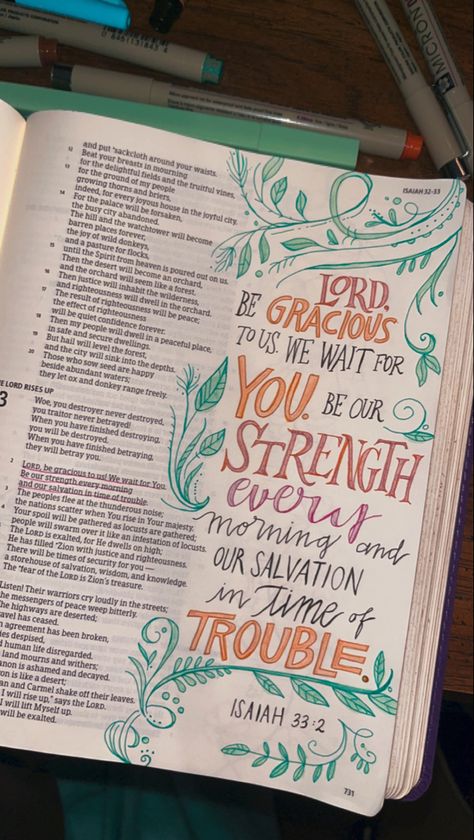 MICRON
ISAIAH 32-33
12 and put sackcloth around your waists.
Beat your breasts in mourning
for the delightful fields and the fruitful vines,
13 for the ground of my people
growing thorns and briers,
indeed, for every joyous house in the joyful city.
14 For the palace will be forsaken,
the busy city abandoned.
The hill and the watchtower will become
barren places forever,
the joy of wild donkeys,
and a pasture for flocks,
15 until the Spirit from heaven is poured out on us.
Then the desert will become an orchard,
and the orchard will seem like a forest.
16 Then justice will inhabit the wilderness,
and righteousness will dwell in the orchard.
17 The result of righteousness will be peace;
the effect of righteousness
will be quiet confidence forever.
18 Then my people will dwell in a peaceful place,
in safe and secure dwellings.
19 But hail will level the forest,
and the city will sink into the depths.
20 Those who sow seed are happy
beside abundant waters;
they let ox and donkey range freely.
THE LORD RISES UP
3 Woe, you destroyer never destroyed,
you traitor never betrayed!
When you have finished destroying,
you will be destroyed.
When you have finished betraying,
they will betray you.
2 LORD, be gracious to us! We wait for You.
Be our strength every morning
and our salvation in time of trouble.
3 The peoples flee at the thunderous noise;
the nations scatter when You rise in Your majesty.
4 Your spoil will be gathered as locusts are gathered;
people will swarm over it like an infestation of locusts.
The LORD is exalted, for He dwells on high;
He has filled Zion with justice and righteousness.
There will be times of security for you —
a storehouse of salvation, wisdom, and knowledge.
The fear of the LORD is Zion's treasure.
Listen! Their warriors cry loudly in the streets;
the messengers of peace weep bitterly.
The highways are deserted;
travel has ceased.
agreement has been broken,
despised,
human life disregarded.
land mourns and withers;
anon is ashamed and decayed.
on is like a desert;
an and Carmel shake off their leaves.
I will rise up," says the LORD.
I will lift Myself up.
will be exalted.
LORD,
BE GRACIOUS
TO US. WE WAIT FOR
YOU. BE OUR
STRENGTH
every
morning and
OUR SALVATION
in Time of
TROUBLE.
ISAIAH 33:2
731